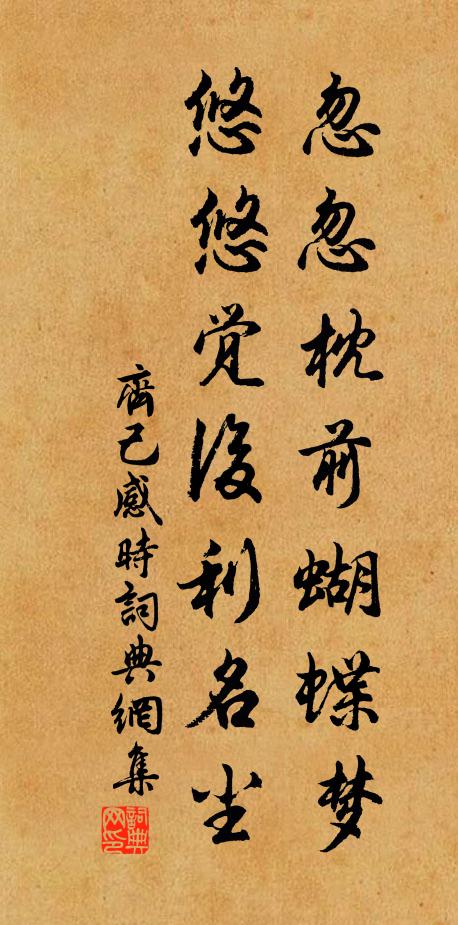 忽忽枕前蝴蝶梦
悠悠觉後利名尘
齊己感時詞典網集
詞典网印